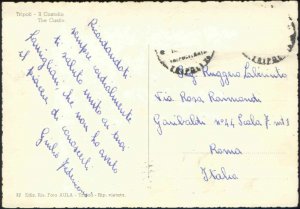 Tripoli - Il Castello
The Castle
Ricordandoti
sempre cordialmente
ti saluto unito ai tuoi
famigliari, che non ho avuto
il piacere di conoscerli.
Giulio
TRIPOLI
Sig. Ruggero
Via Rosa Raimondi
Garibaldi n° 44 Scala F. int 1
Roma
Italia
12 Ediz. Ris. Foto AULA - Tripoli - Rip. vietata